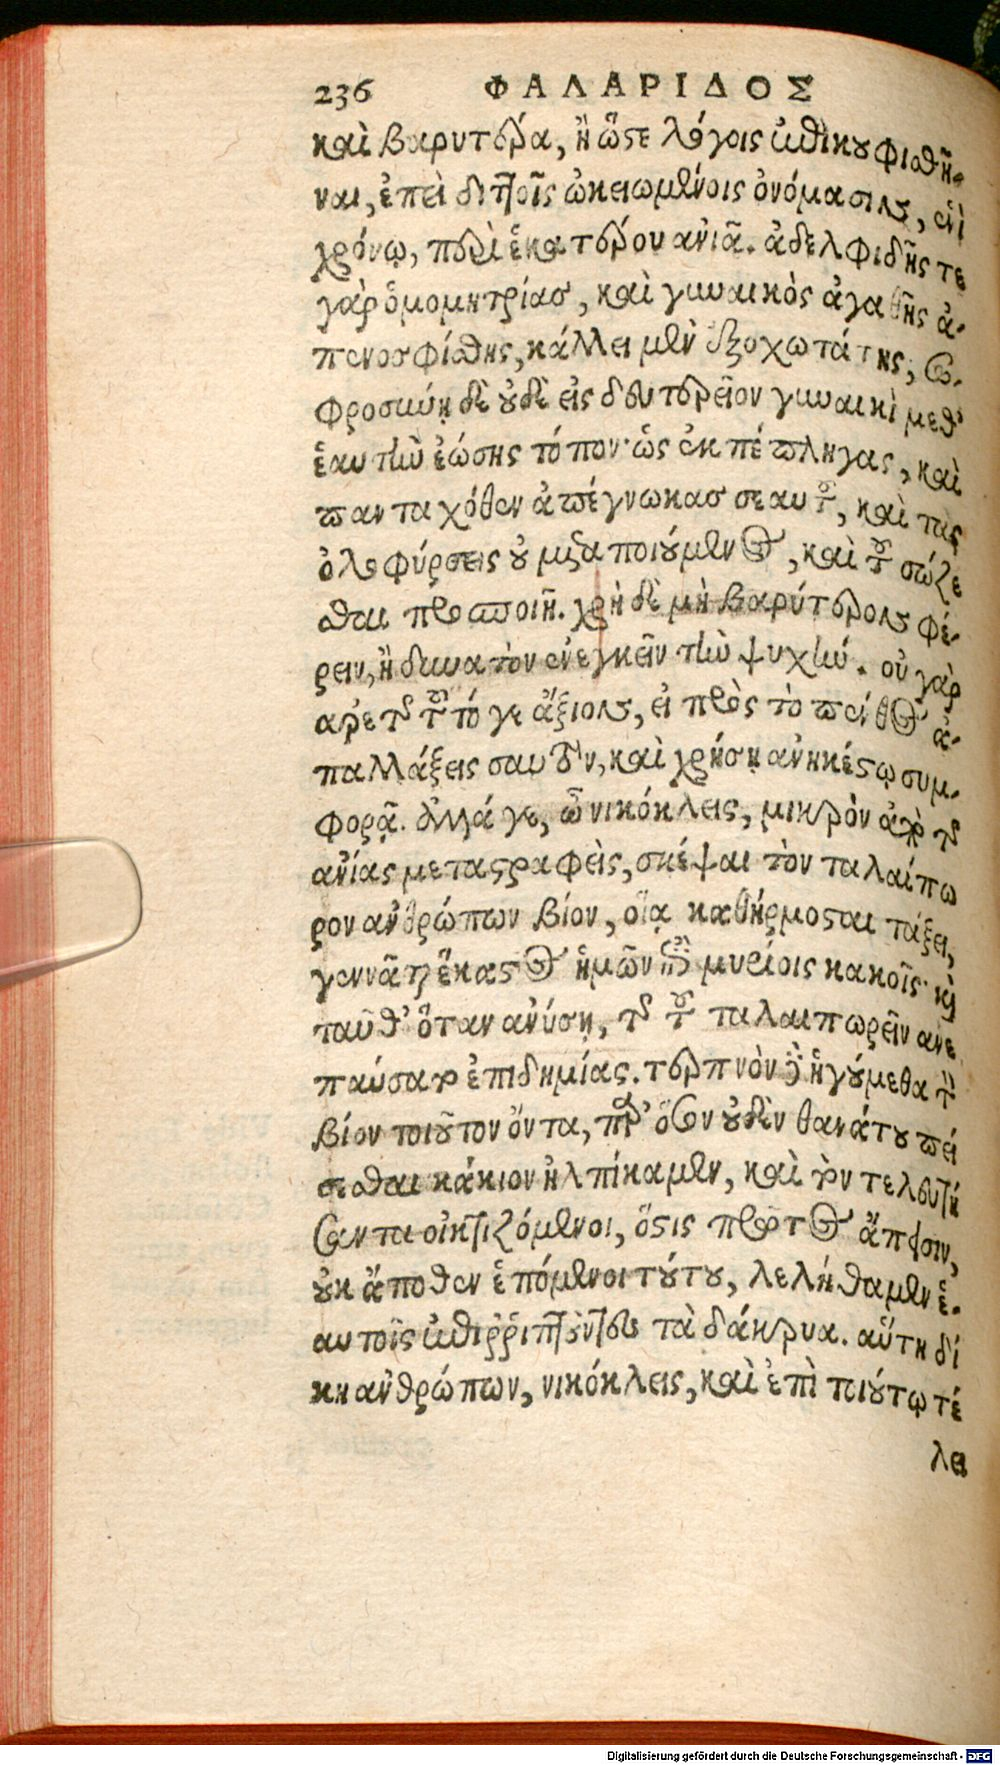 236 ΦΑΛΑΡΙΔΟΣ
καὶ βαρυτέρα, ἢ ὥστε λόγοις ἐπικουφισθῆ-
ναι, ἐπεὶ διττοῖς ὠκειωμένοις ὀνόμασιν, ἑνὶ
χρόνῳ, περὶ ἑκατέρου ἀνιᾷ. ἀδελφιδῆς τε
γὰρ ὁμομητρίας, καὶ γυναικὸς ἀγαθῆς ἀ-
πενοσφίσθης, κάλλει μὲν ἐξοχωτάτης, σω-
φροσύνῃ δὲ οὐδὲ εἰς δευτερεῖον γυναικὶ μεθ'
ἑαυτὴν ἐώσης τόπον· ὡς ἐκπέπληγας, καὶ
πανταχόθεν ἀπέγνωκας σεαυτοῦ, καὶ τὰς
ὀλοφύρσεις οὐ μεταποιούμενος, καὶ τοῦ σώζε
σθαι προσποιῇ. χρὴ δὲ μὴ βαρύτερον φέ-
ρειν, ἢ δυνατὸν ἐνεγκεῖν τὴν ψυχήν. οὐ γὰρ
ἀρετῆς τοῦτό γε ἄξιον, εἰ πρὸς τὸ πένθος ἀ-
παλλάξεις σαυτὸν, καὶ χρήσῃ ἀνηκέστῳ συμ-
φορᾷ. ἀλλά γε, ὦ νικόκλεις, μικρὸν ἀπὸ τῆς
ἀνίας μεταστραφεὶς, σκέψαι τὸν ταλαίπω
ρον ἀνθρώπων βίον, οἵᾳ καθήρμοσται τάξει,
γεννᾶται ἕκαστος ἡμῶν ἐπὶ μυρίοις κακοῖς· καὶ
ταῦθ' ὅταν ἀνύσῃ, τῆς τοῦ ταλαιπωρεῖν ἀνε
παύσατο ἐπιδημίας. τερπνὸν γὰρ ἡγούμεθα τὸν
βίον τοιοῦτον ὄντα, παρ' ὅσον οὐδὲν θανάτου πεί
σεσθαι κάκιον ἠλπίκαμεν, καὶ τὸν τελευτή
σαντα οἰκτιζόμενοι, ὅστις πρῶτος ἄπεισιν,
οὐκ ἄποθεν ἑπόμενοι τούτου, λελήθαμεν ἑ-
αυτοῖς ἐπιρριπτοῦντες τὰ δάκρυα. αὕτη δί
κη ἀνθρώπων, νικόκλεις, καὶ ἐπὶ τοιούτῳ τέ
λει
Digitalisierung gefördert durch die Deutsche Forschungsgemeinschaft - DFG